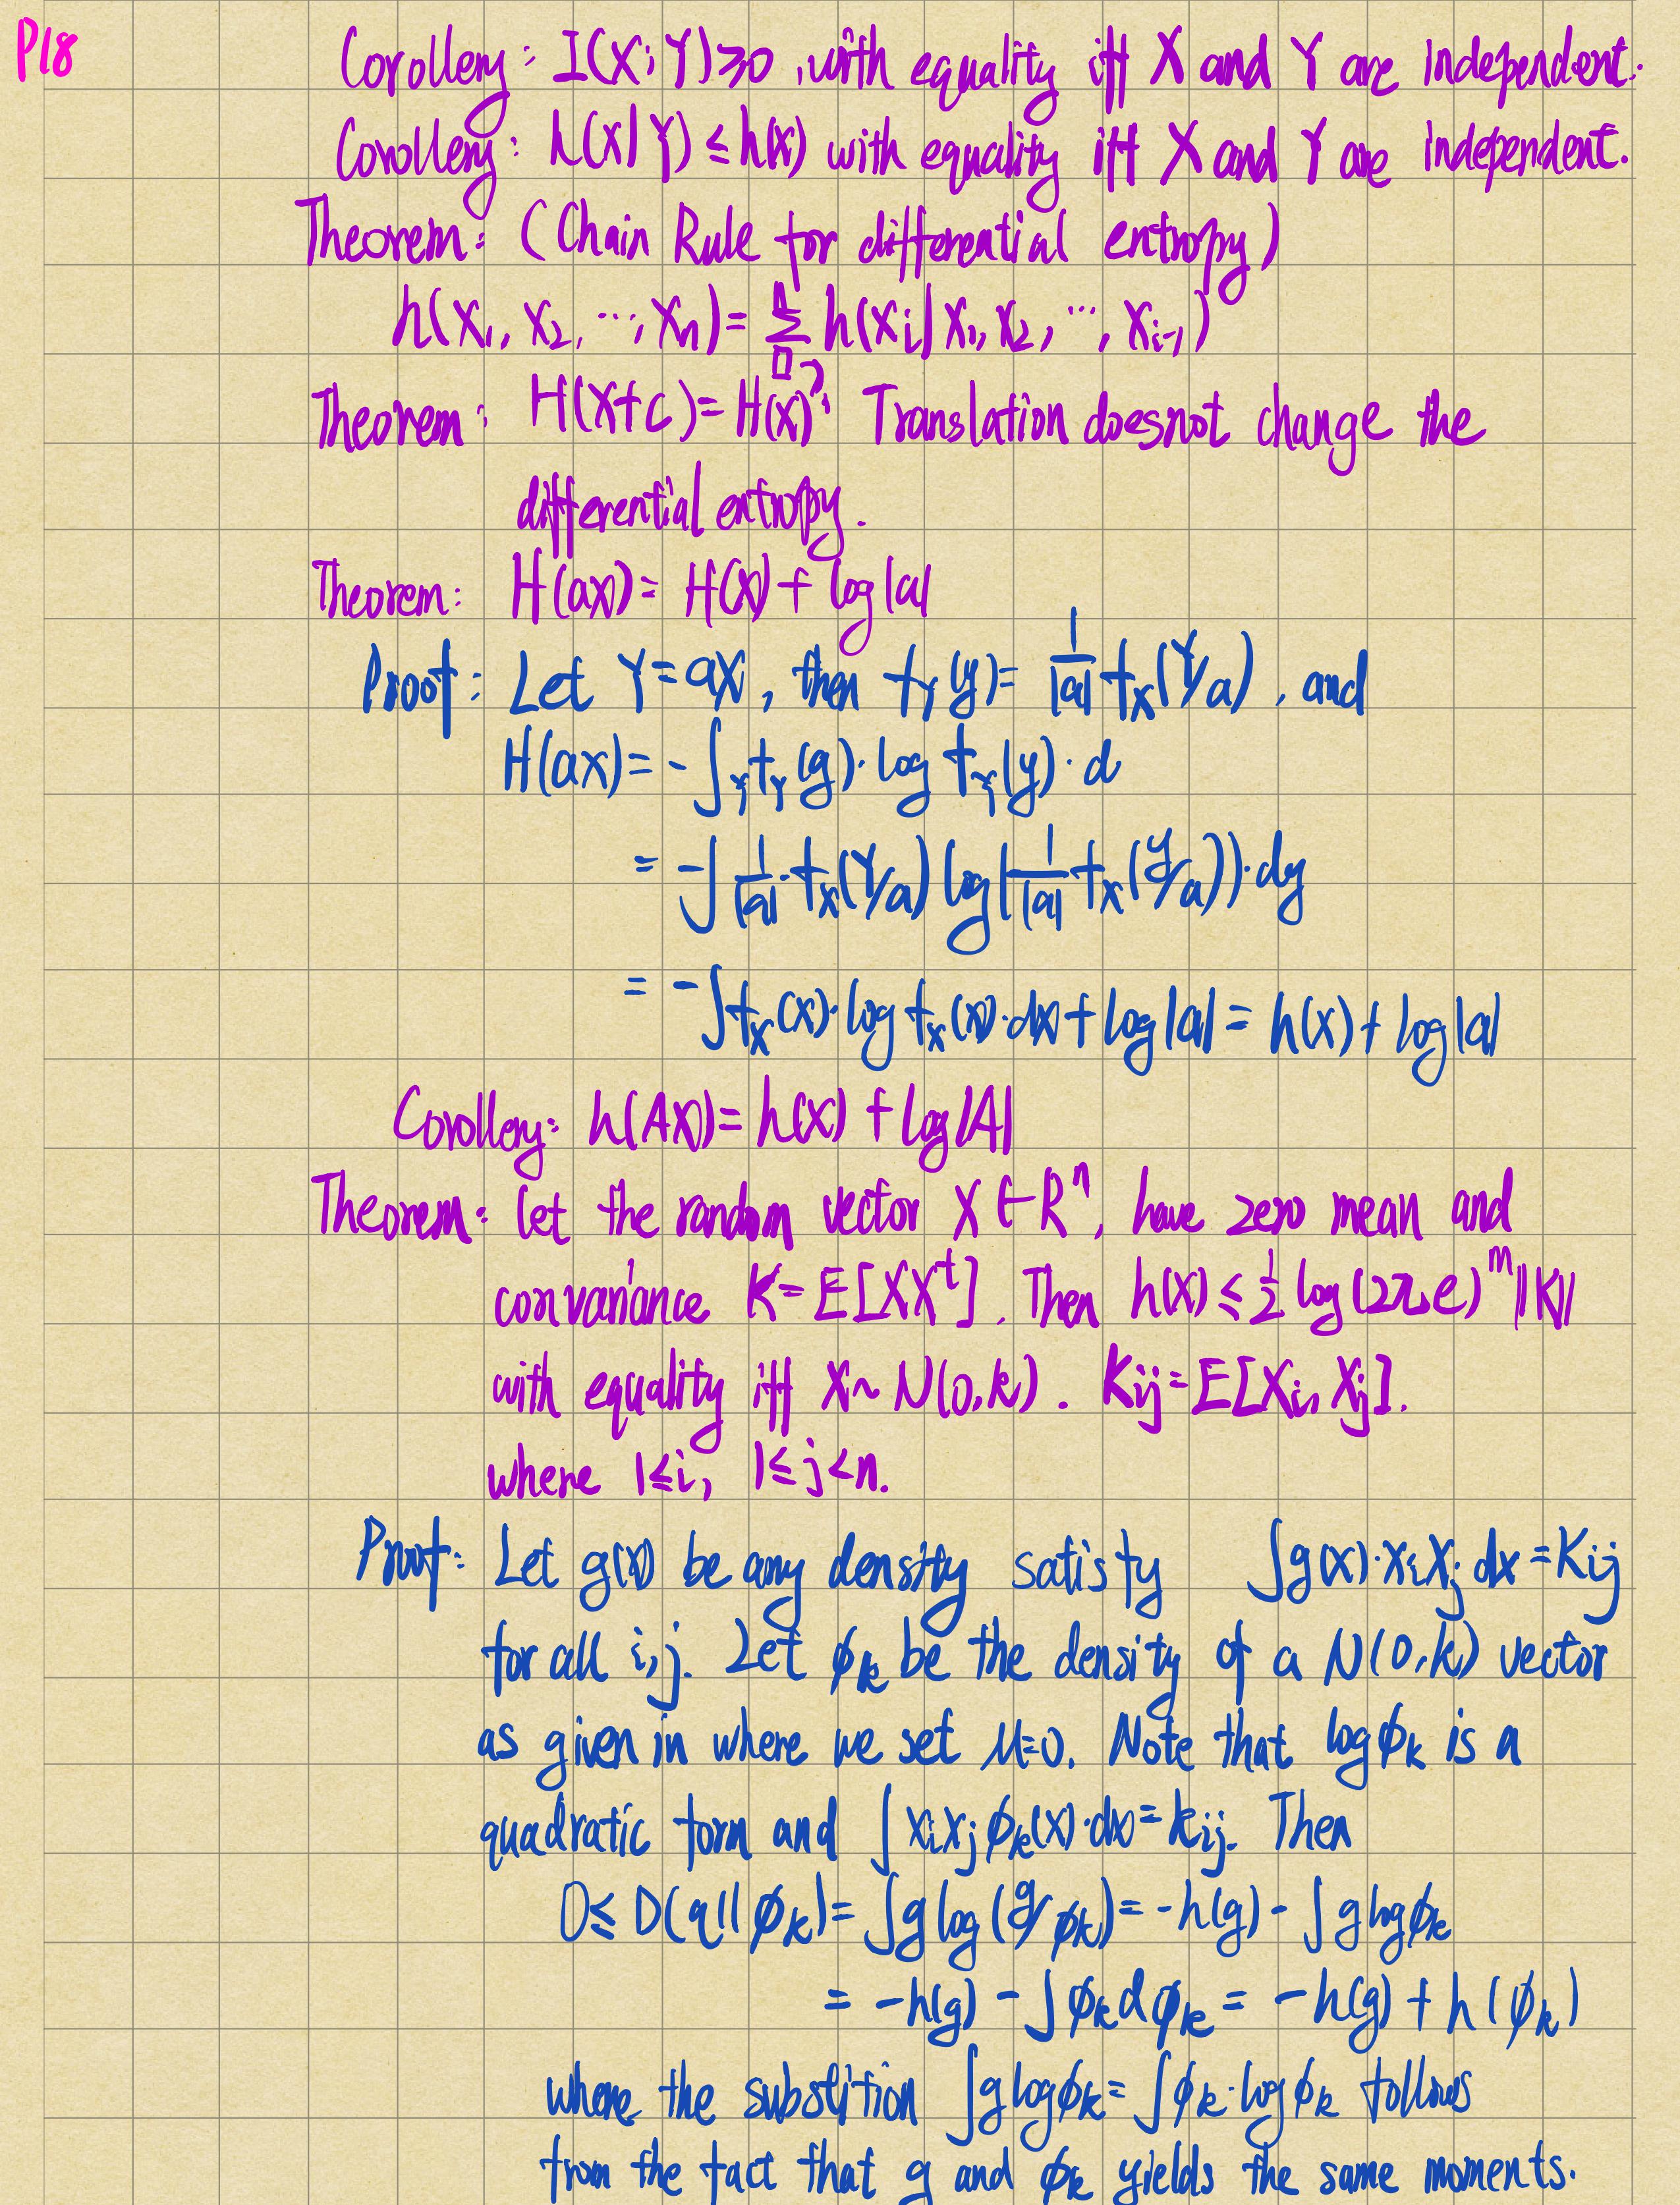 P18
Corollery: I(X;Y)≥0, with equality iff X and Y are independent.
Corollery: h(X|Y) ≤ h(X) with equality iff X and Y are independent.
Theorem: (Chain Rule for differential entropy)
h(X₁, X₂, ⋯, Xₙ) = Σ h(Xi|X₁, X₂, ⋯, Xᵢ₋₁)
Theorem: H(X+c) = H(X), Translation doesnot change the
differential entropy.
Theorem: H(ax) = H(X) + log|a|
Proof: Let Y=aX, then f_Y(y) = 1/|a| f_X(Y/a), and
H(ax) = -∫_Y f_Y(y)·log f_Y(y)·d
= -∫ 1/|a|·f_X(Y/a) log(1/|a| f_X(y/a))·dy
= -∫f_X(x)·log f_X(x)·dx + log|a| = h(x) + log|a|
Corollery: h(AX) = h(X) + log|A|
Theorem: Let the random vector X ∈ Rⁿ, have zero mean and
convariance K = E[XXᵗ]. Then h(X) ≤ ½ log(2πe)ⁿ||K||
with equality iff X~N(0,k). Kij = E[Xi, Xj].
where 1≤i, 1≤j<n.
Proof: Let g(x) be any density satisfy ∫g(x)·xixj dx = Kij
for all i,j. Let ϕk be the density of a N(0,k) vector
as given in where we set μ=0. Note that logϕk is a
quadratic form and ∫xixjϕk(x)·dx = kij. Then
0 ≤ D(q||ϕk) = ∫g log(g/ϕk) = -h(g) - ∫g logϕk
= -h(g) - ∫ϕk dϕk = -h(g) + h(ϕk)
where the substition ∫g logϕk = ∫ϕk·logϕk follows
from the fact that g and ϕk yields the same moments.